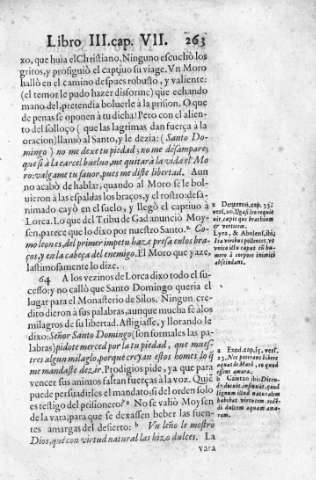 Libro III.cap. VII. 263
xo, que huia el Christiano. Ninguno escuchò los
gritos, y prosiguiò el captiuo su viage. Vn Moro
hallò en el camino despues robusto, y valiente:
(el temor le pudo hazer disforme) que echando
mano del, pretendia boluerle à la prision. O que
de penas se oponen à tu dicha! Pero con el alien-
to del solloço (que las lagrimas dan fuerça à la
oracion) llamò al Santo, y le dezia: (Santo Do-
mingo) no me dexe tu piedad, no me desampare,
que si à la carcel bueluo, me quitarà la vida el Mo-
ro: valgame tu fauor, pues me diste libertad. Aun
no acabò de hablar, quando al Moro se le bol-
uieron à las espaldas los braços, y el rostro: desa-
nimado cayò en el suelo, y llegò el captiuo à
Lorca. Lo que del Tribu de Gad anunciò Moy-
sen, parece que lo dixo por nuestro Santo. Co-
mo leones, del primer impetu haze presa en los bra-
ços, y en la cabeça del enemigo. El Moro que yaze,
lastimosamente lo dize.
64 A los vezinos de Lorca dixo todo el su-
cesso; y no callò que Santo Domingo queria el
lugar para el Monasterio de Silos. Ningun cre-
dito dieron à sus palabras, aunque mucha fè à los
milagros de su libertad. Afligiasse, y llorando le
dixo: Señor Santo Domingo (son formales las pa-
labras) pidote merced por la tu piedad, que mues-
tres algun milagro, porque crey an estos homes lo q̃
me mandaste dezir. Prodigios pide, ya que para
vencer sus animos faltan fuerças à la voz. Què
puede persuadirles el mandato, si del orden solo
es testigo del prisionero? No se valiò Moysen
de la vara; para que se dexassen beber las fuen-
tes amargas del desierto: b Vn leño le mostrò
Dios, que con virtud natural las hizo dulces. La
vara
z Deuteron. cap. 33.
vers, 20.
cepit que brachium
& verticem.
Lyra, & Abulens. ibi;
Ita viribus pollentes, vt
vnico ictu caput cũ hu-
mero à corpore inimici
abscindant.
a Exod. cap. 15. vers.
23. Nec poterant bibere
aquas de Marà, eo quod
essent amaræ.
b
signum illud naturalem
habebat virtutem redde-
di dulcem aquam ama-
ram.